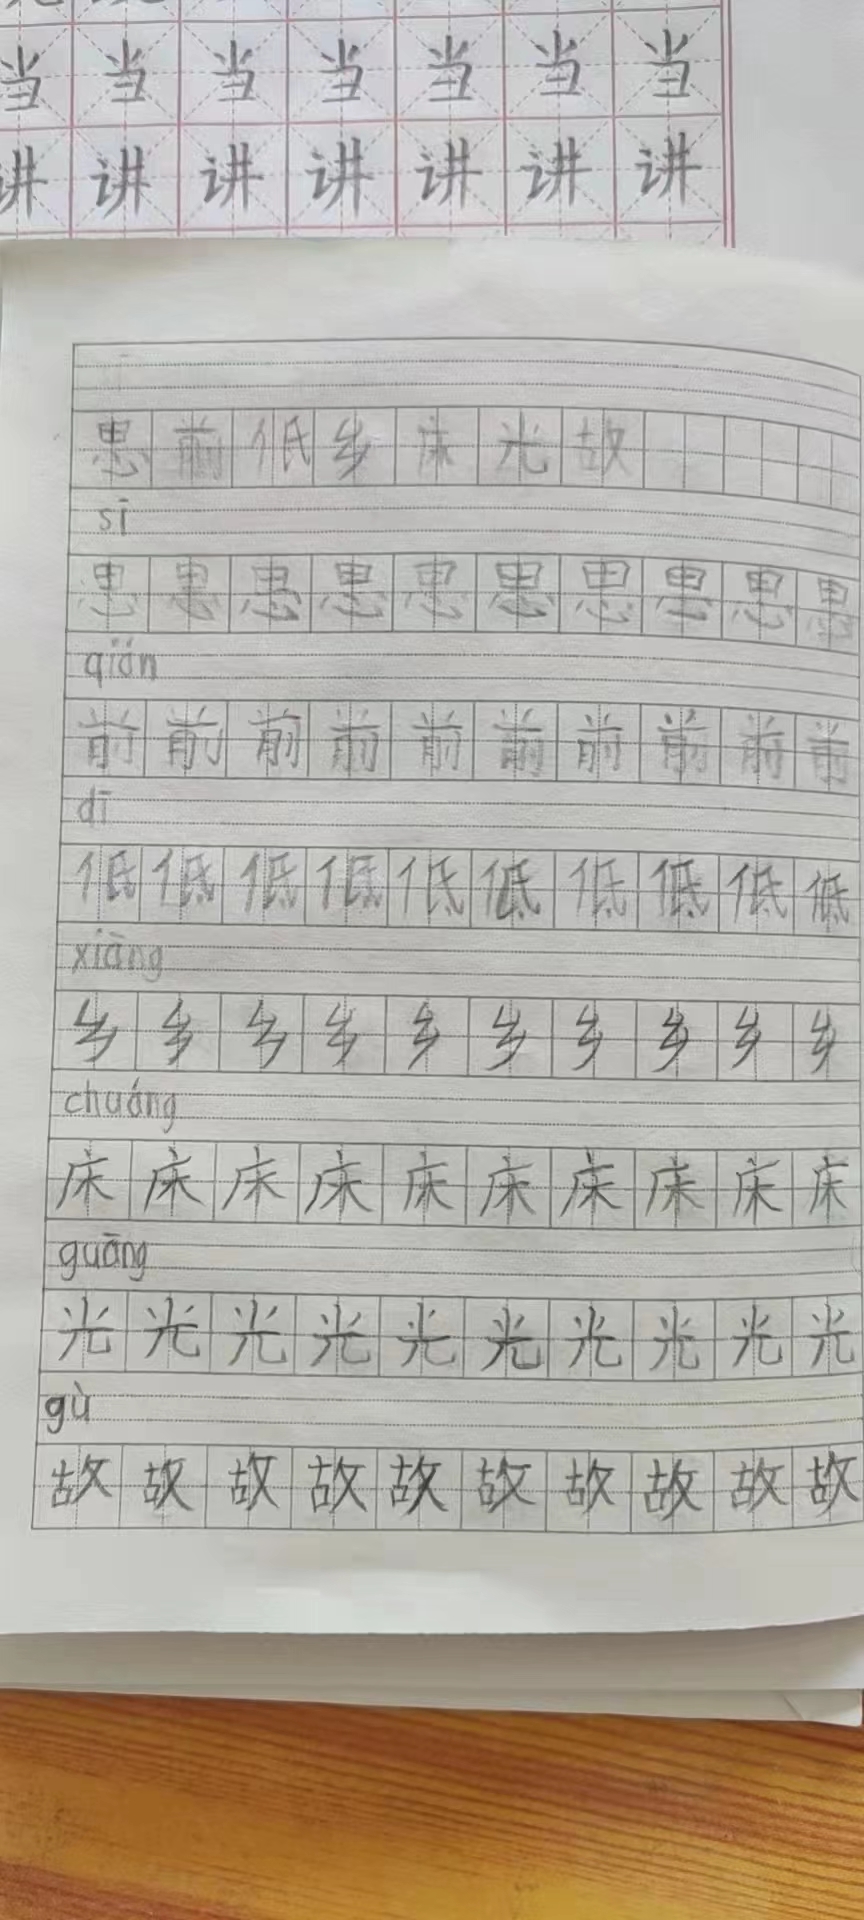 当 当 当 当 当 当 当
讲 讲 讲 讲 讲 讲 讲
思 前 低 乡 床 光 故
sī
思 思 思 思 思 思 思 思 思 思
qián
前 前 前 前 前 前 前 前 前 前
dī
低 低 低 低 低 低 低 低 低 低
xiāng
乡 乡 乡 乡 乡 乡 乡 乡 乡 乡
chuáng
床 床 床 床 床 床 床 床 床 床
guāng
光 光 光 光 光 光 光 光 光 光
gù
故 故 故 故 故 故 故 故 故 故